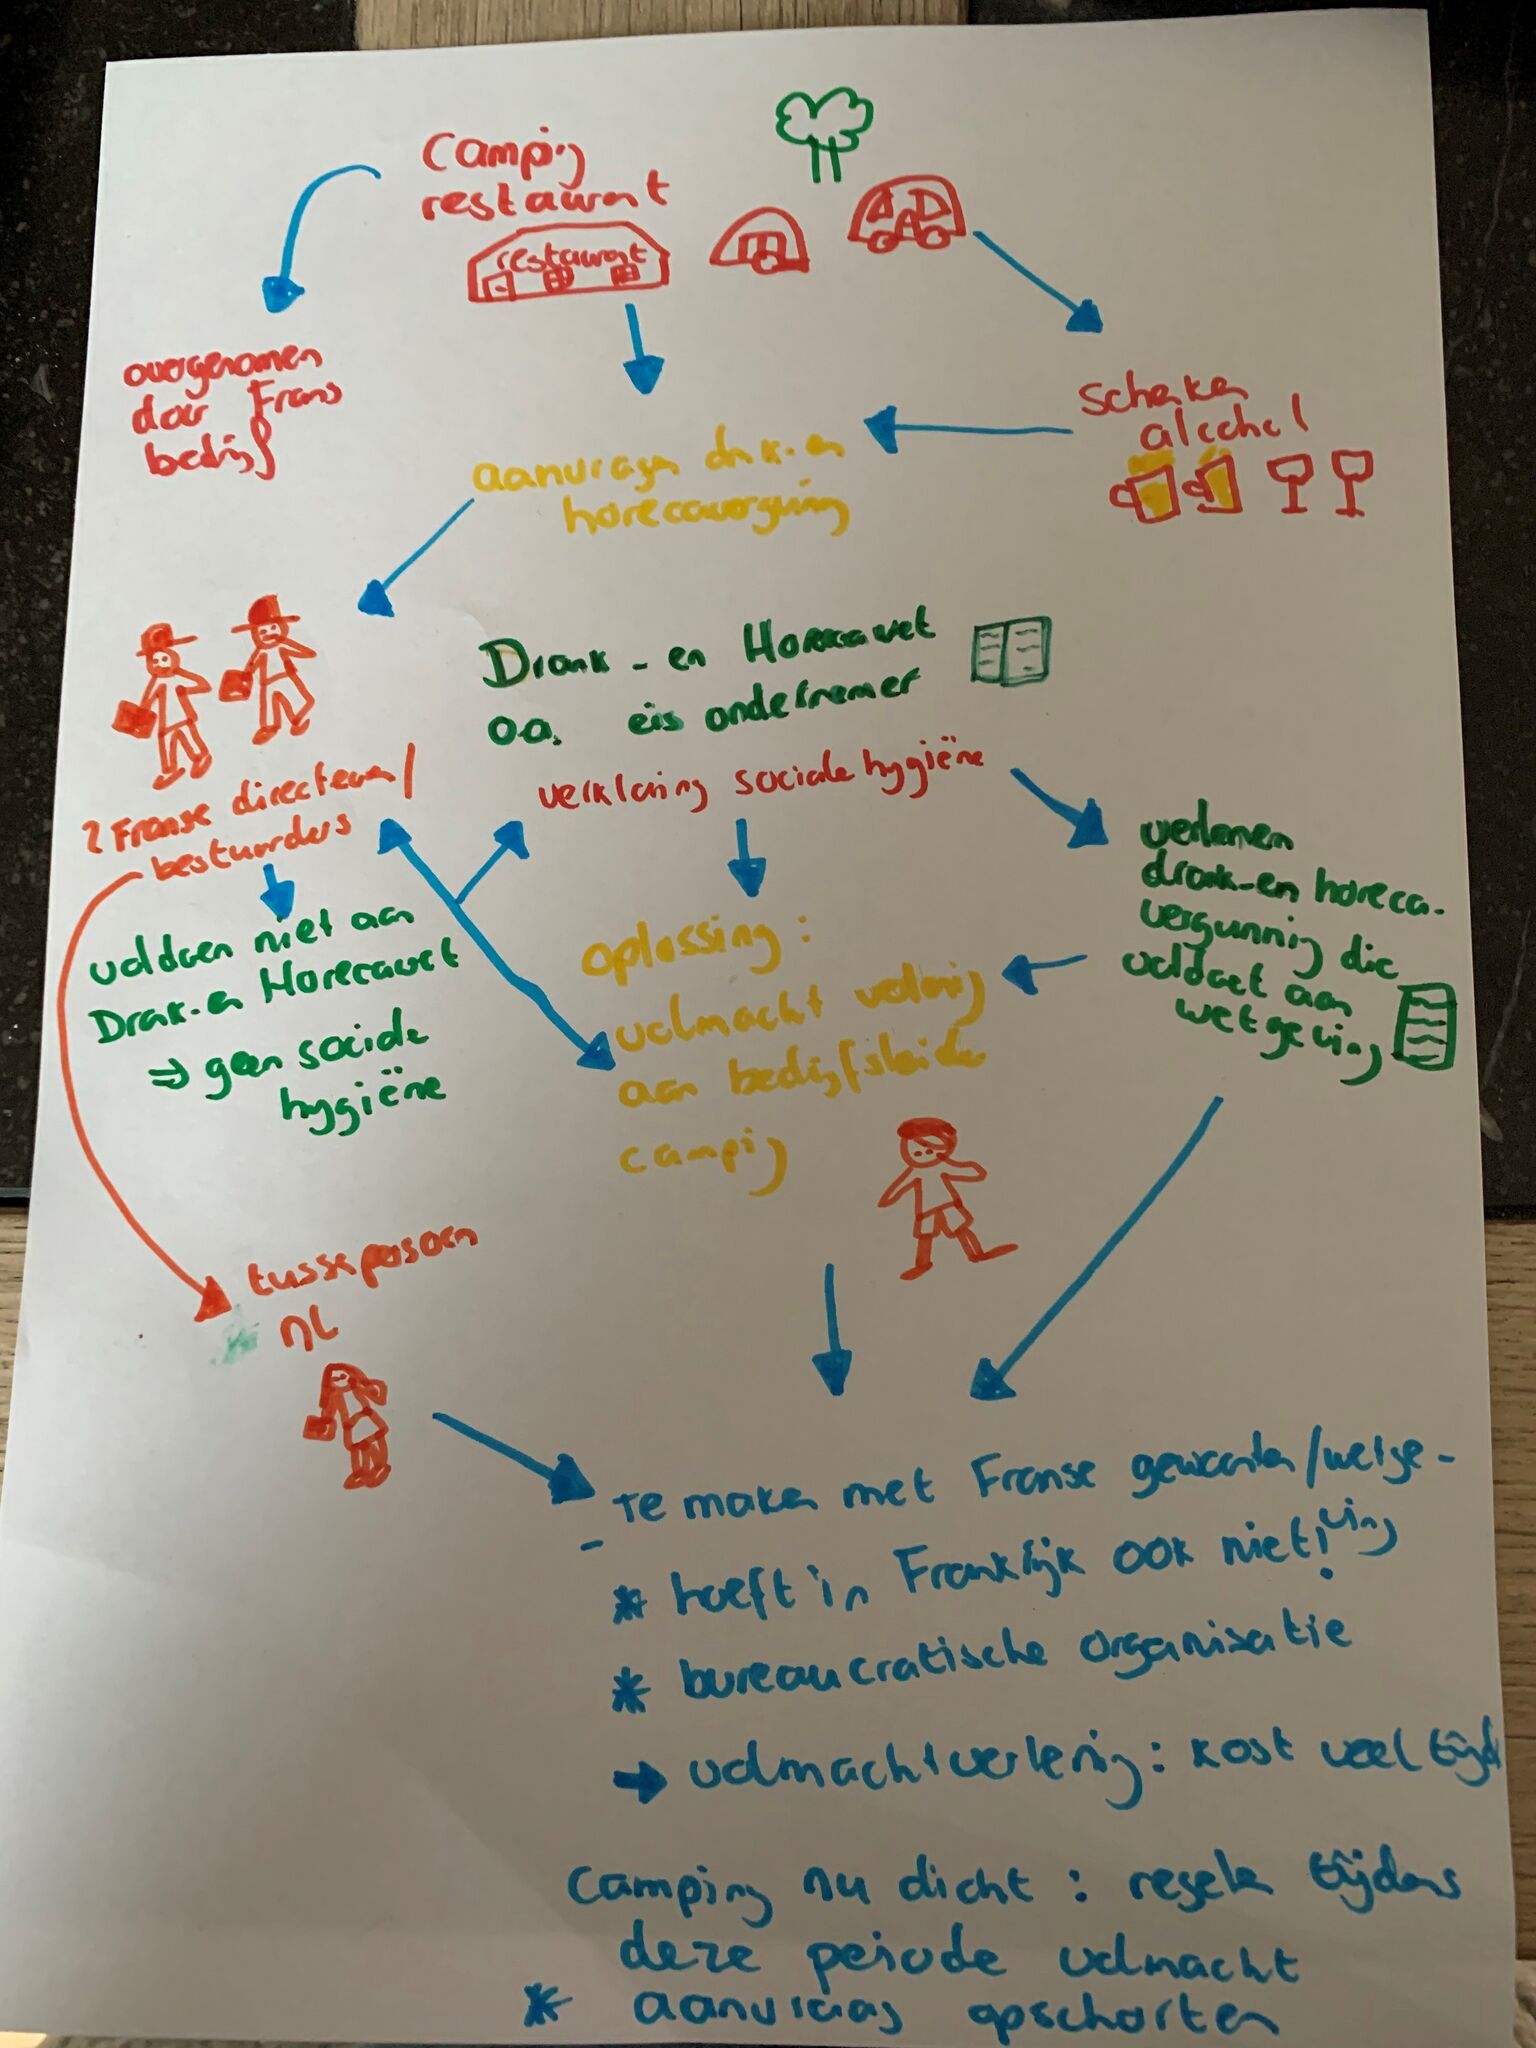 Camping
restaurant
restaurant
overgenomen
door Frans
bedrijf
schenken
alcohol
aanvragen drank-en
horecavergunning
Drank-en Horecawet
o.a. eis ondernemer
verklaring sociale hygiëne
2 Franse directeuren/
bestuurders
voldoen niet aan
Drank-en Horecawet
⇒ geen sociale
hygiëne
verlenen
drank-en horeca-
vergunning die
voldoet aan
wetgeving
oplossing:
volmacht verlening
aan bedrijfsleider
camping
tussenpersoon
NL
- te maken met Franse gewoonten/wetge-
ving
* hoeft in Frankrijk ook niet!
* bureaucratische organisatie
→ volmachtverlening: kost veel tijd
Camping nu dicht: regelen tijdens
deze periode volmacht
* aanvraag opschorten